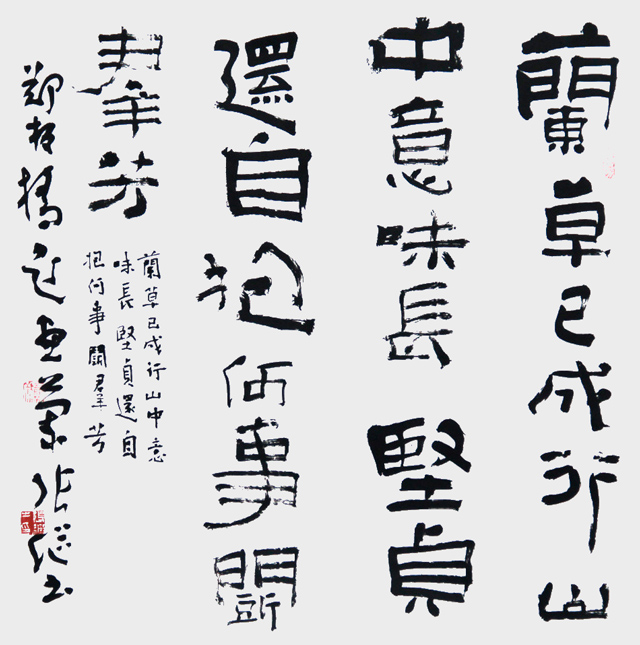 蘭草已成行山
中意味長堅貞
還自抱何事鬭
羣芳
蘭草已成行山中意
味長堅貞還自
抱何事鬭羣芳
鄭板橋題畫蘭張繼書